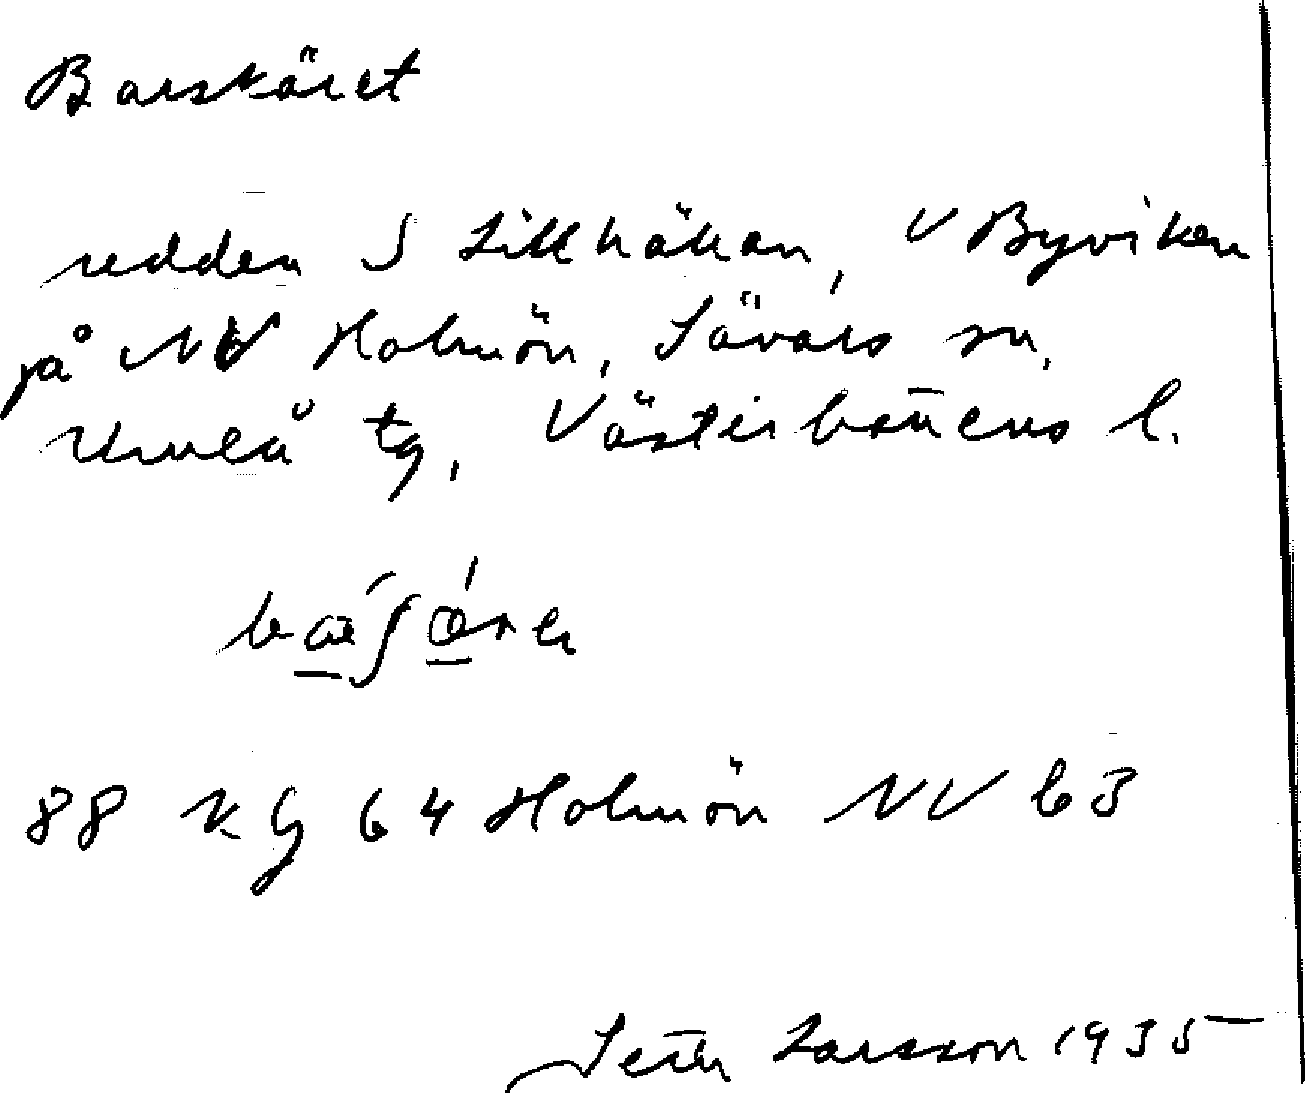 Barskäret
udden S Lillhällan, V Byviken
på NV Holmön, Sävars sn,
Umeå tg, Västerbottens l.
88 KG 64 Holmön NV b3
Larsson 1935